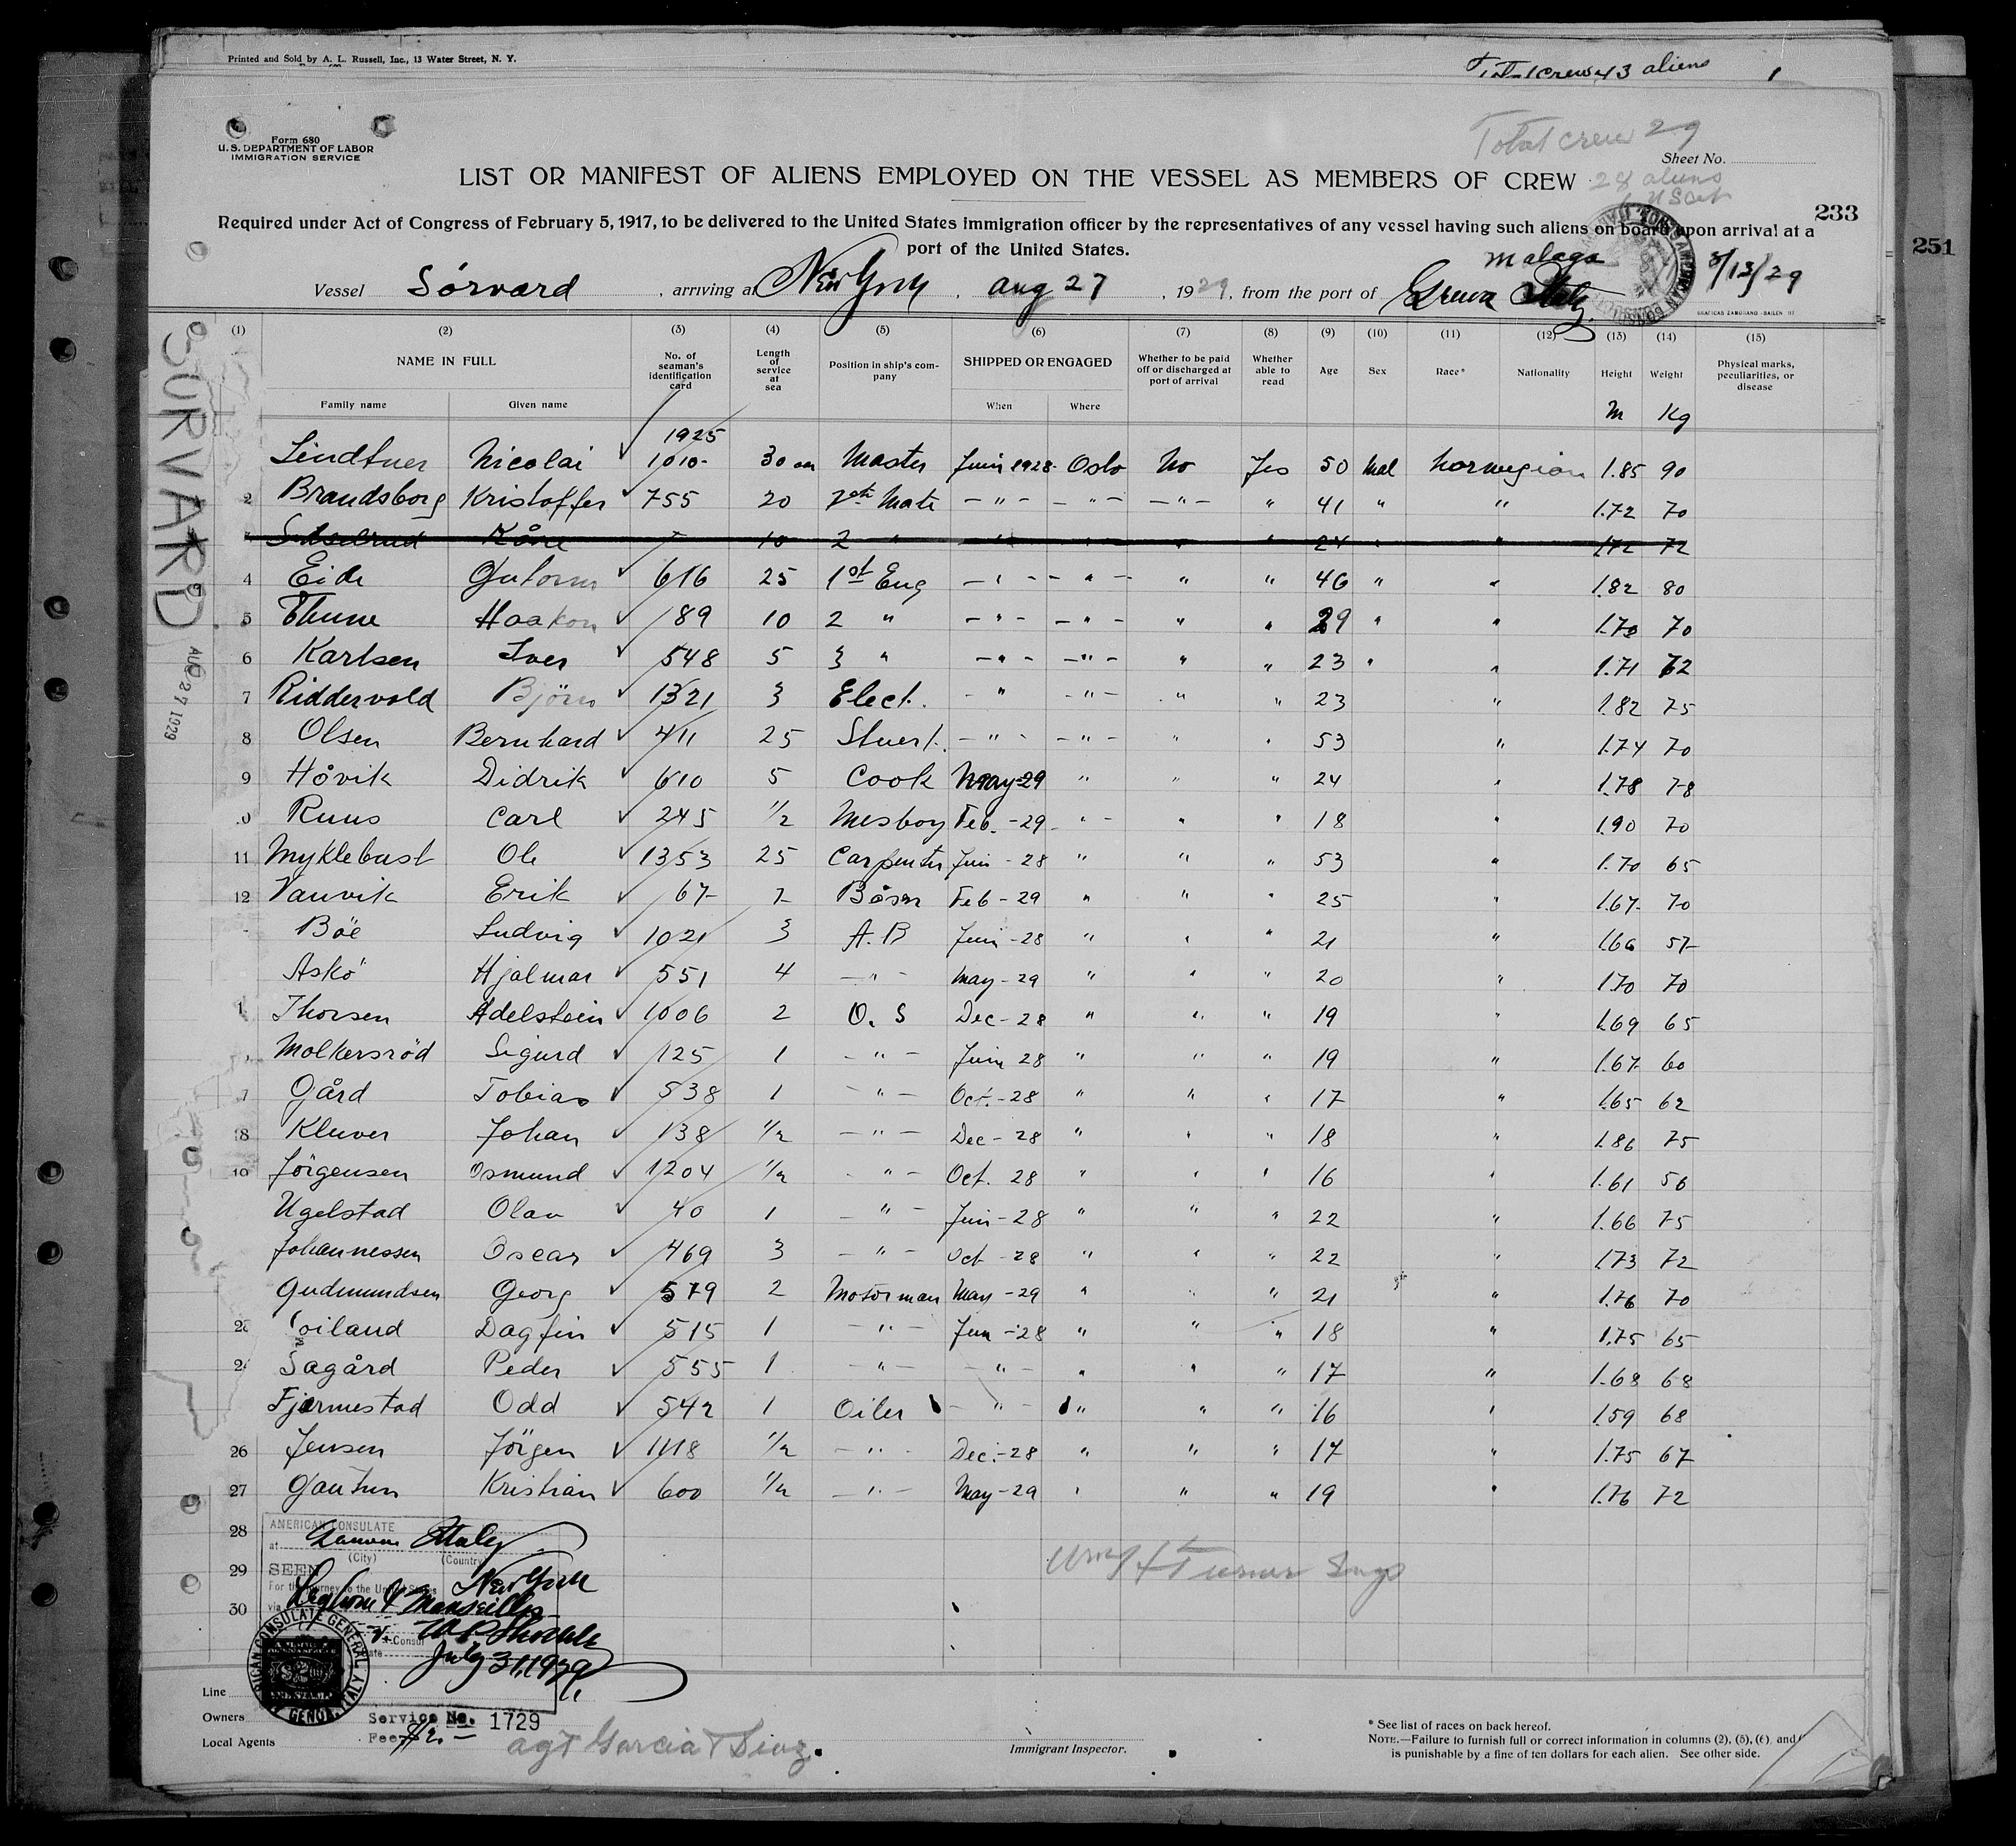 Printed and Sold by A. L. Russell, Inc., 13 Water Street, N. Y.
Total crew 43 aliens 1
Form 680
U. S. DEPARTMENT OF LABOR
IMMIGRATION SERVICE
Total crew 29
Sheet No.
LIST OR MANIFEST OF ALIENS EMPLOYED ON THE VESSEL AS MEMBERS OF CREW
28 aliens
233
251
Required under Act of Congress of February 5, 1917, to be delivered to the United States immigration officer by the representatives of any vessel having such aliens on board upon arrival at a
port of the United States.
Malaga 8/13/29
Vessel Sörvard, arriving at New York, Aug 27, 1929, from the port of Genoa Italy.
GRAFICAS ZAMBRANO-BAILEN
(1) (2) (3) (4) (5) (6) (7) (8) (9) (10) (11) (12) (13) (14) (15)
NAME IN FULL No. of seaman's identification card Length of service at sea Position in ship's company SHIPPED OR ENGAGED Whether to be paid off or discharged at port of arrival Whether able to read Age Sex Race* Nationality Height Weight Physical marks, peculiarities, or disease
Family name Given name When Where M Kg
1925
Lindtner Nicolai ✓ 1010- 30 Master Juni 1928- Oslo No Yes 50 Mal Norwegian 1.85 90
2 Brandsborg Kristoffer ✓ 755 20 Mate - " - - " - - " - " 41 " " 1.72 70
Kåre 10 2 " " " " " 24 " " 1.72 72
4 Eide Gutorm ✓ 616 25 1st Eng - " - - " - " " 46 " " 1.82 80
5 Thune Haakon ✓ 189 10 2 " - " - - " - " " 29 " " 1.70 70
6 Karlsen Iver ✓ 548 5 3 " - " - - " - " " 23 " " 1.71 62
7 Riddervold Björn ✓ 1321 3 Elect. - " - " - " " 23 " 1.82 75
8 Olsen Bernhard ✓ 411 25 Stuert. - " - - " - " " 53 " 1.74 70
9 Håvik Didrik ✓ 610 5 Cook May-29 " " " 24 " 1.78 78
0 Ruus Carl ✓ 245 1/2 Mesboy Feb.-29 " " " 18 " 1.90 70
11 Myklebust Ole ✓ 1353 25 Carpenter Juni-28 " " " 53 " 1.70 65
12 Vanvik Erik ✓ 67 7 Båsn Feb-29 " " " 25 " 1.67 70
Böe Ludvig ✓ 1021 3 A.B Juni-28 " " " 21 " 1.66 57
Askö Hjalmar ✓ 551 4 - " - May-29 " " " 20 " 1.70 70
1 Thorsen Adelstein ✓ 1006 2 O. S Dec-28 " " " 19 " 1.69 65
Molkersröd Sigurd ✓ 125 1 - " - Juni 28 " " " 19 " 1.67 60
7 Gård Tobias ✓ 538 1 - " - Oct.-28 " " " 17 " 1.65 62
18 Kluver Johan ✓ 138 1/2 - " - Dec-28 " " " 18 " 1.86 75
19 Jörgensen Osmund ✓ 1204 1/2 " - Oct. 28 " " " 16 " 1.61 56
Ugelstad Olav ✓ 40 1 - " - Juni-28 " " " 22 " 1.66 75
Johannessen Oscar ✓ 469 3 - " - Oct-28 " " " 22 " 1.73 72
Gudmundsen Georg ✓ 579 2 Motorman May-29 " " " 21 " 1.76 70
23 oiland Dagfin ✓ 515 1 - " - Jun-28 " " " 18 " 1.75 65
24 Sagård Peder ✓ 555 1 - " - - " - " " " 17 " 1.68 68
Fjermestad Odd ✓ 542 1 Oiler - " - " " " 16 " 1.59 68
26 Jensen Jörgen ✓ 1118 1/2 - " - Dec.-28 " " " 17 " 1.75 67
27 Gautun Kristian ✓ 600 1/2 - " - May-29 " " " 19 " 1.76 72
28
29
30
SÖRVARD
AUG 27 1929
AMERICAN CONSULATE
at Genova Italy
(City) (Country)
SEEN
For the journey to the United States New York
via Leghorn & Marseilles
Consul
July 31, 1929
AMERICAN CONSULATE GENERAL GENOA, ITALY
Line
Owners
Local Agents
Service No. 1729
Fee $2.-
agt Garcia & Diaz.
Immigrant Inspector.
* See list of races on back hereof.
NOTE.—Failure to furnish full or correct information in columns (2), (5), (6) and
is punishable by a fine of ten dollars for each alien. See other side.